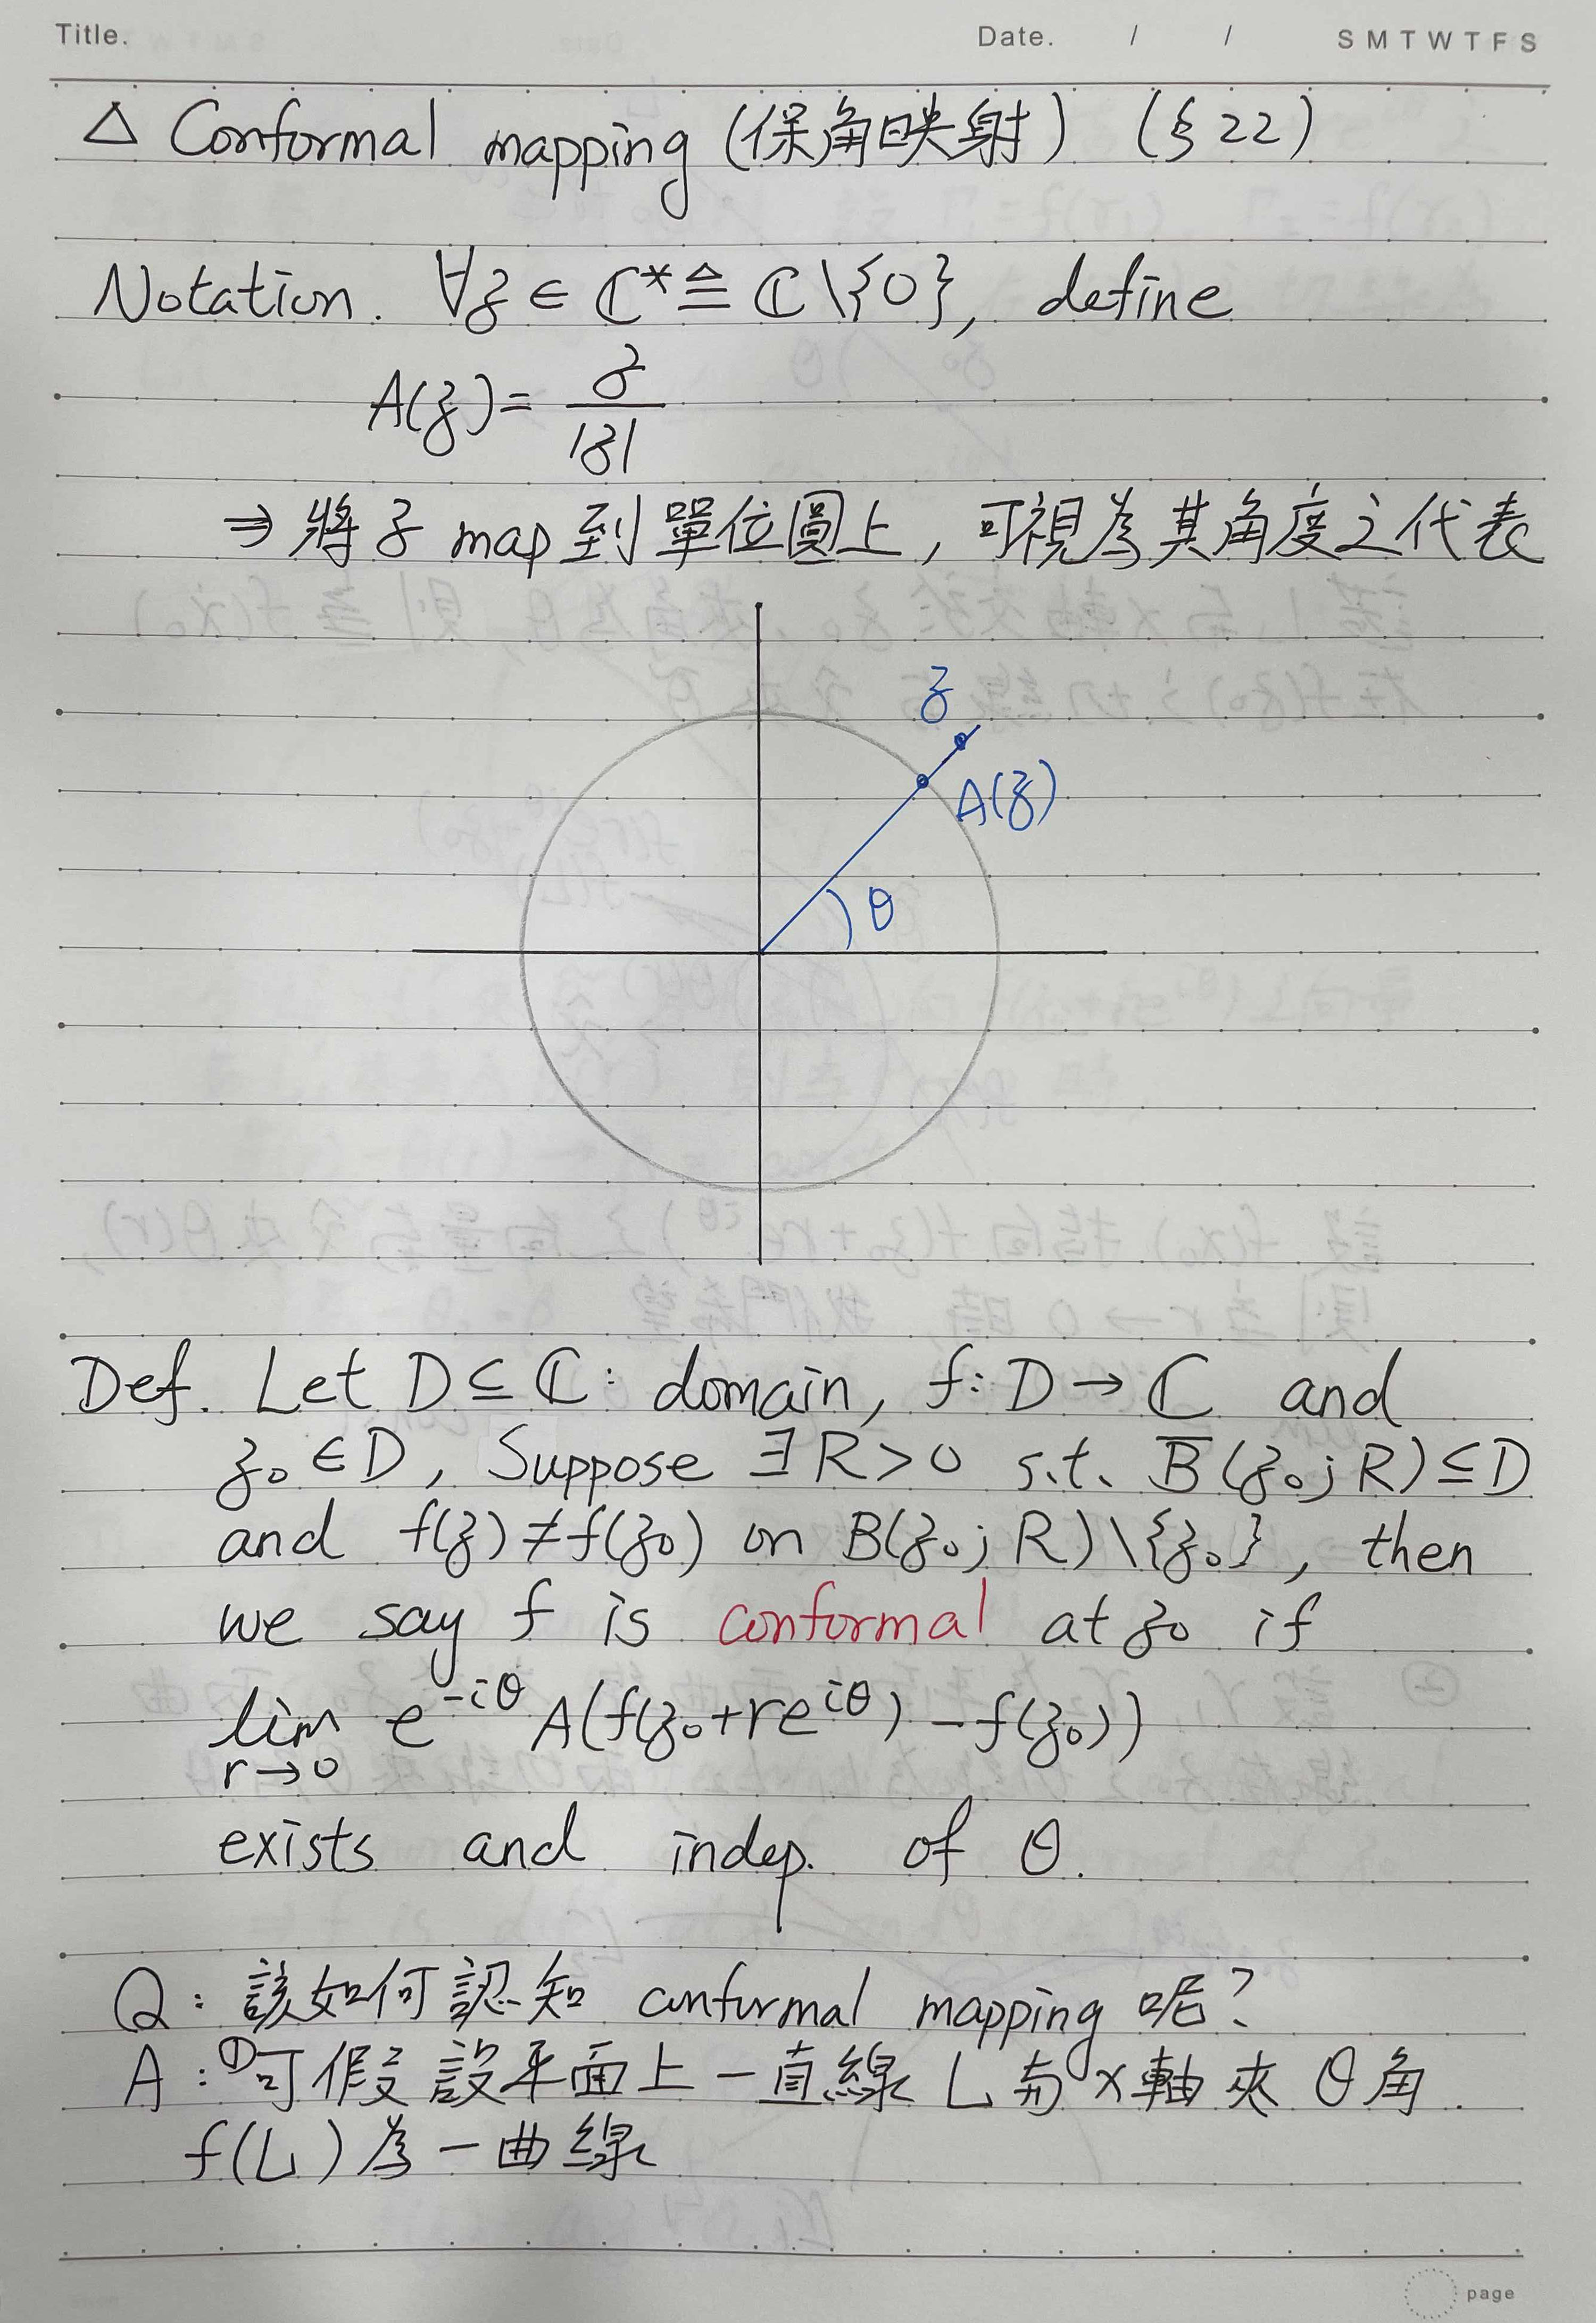 Title.
Date. / / S M T W T F S
△ Conformal mapping (保角映射) (§22)
Notation. ∀z ∈ ℂ* ≜ ℂ\{0}, define
A(z) = z/|z|
⇒ 將 z map 到單位圓上, 可視為其角度之代表
z
A(z)
θ
Def. Let D ⊆ ℂ: domain, f: D → ℂ and
z₀ ∈ D, Suppose ∃R>0 s.t. B̅(z₀; R) ⊆ D
and f(z) ≠ f(z₀) on B(z₀; R)\{z₀}, then
we say f is conformal at z₀ if
lim_{r→0} e^{-iθ} A(f(z₀+re^{iθ}) - f(z₀))
exists and indep. of θ.
Q: 該如何認知 conformal mapping 呢?
A: ①可假設平面上一直線 L 與 x 軸夾 θ 角.
f(L) 為一曲線
page